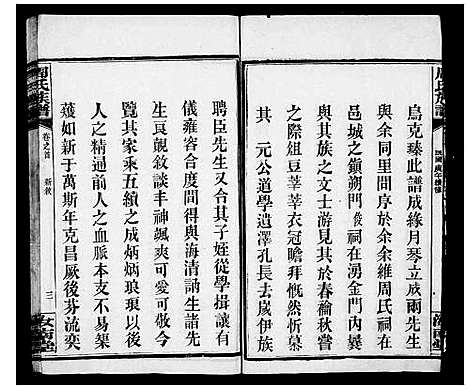 周氏族譜
烏克臻此譜成緣月琴立成兩先生
與余同里間序於余余維周氏祠在
邑城之鎮朔門後祠在湧金門內嘗
與其族之文士游見其於春禴秋嘗
之際俎豆莘莘衣冠瞻拜慨然忻慕
其 元公道學遺澤孔長去歲伊族
聘臣先生又合其子姪從學揖讓有
儀雍容合度間得與海清訥生諸先
生哀覿敘談丰神颯爽可愛可敬今
覽其家乘五續之成炳炳琅琅以後
人之精過前人之血脈本不易榘
矱如新于萬斯年克昌厥後芬流奕
周氏族譜
卷之首 新敘
三
汝南堂